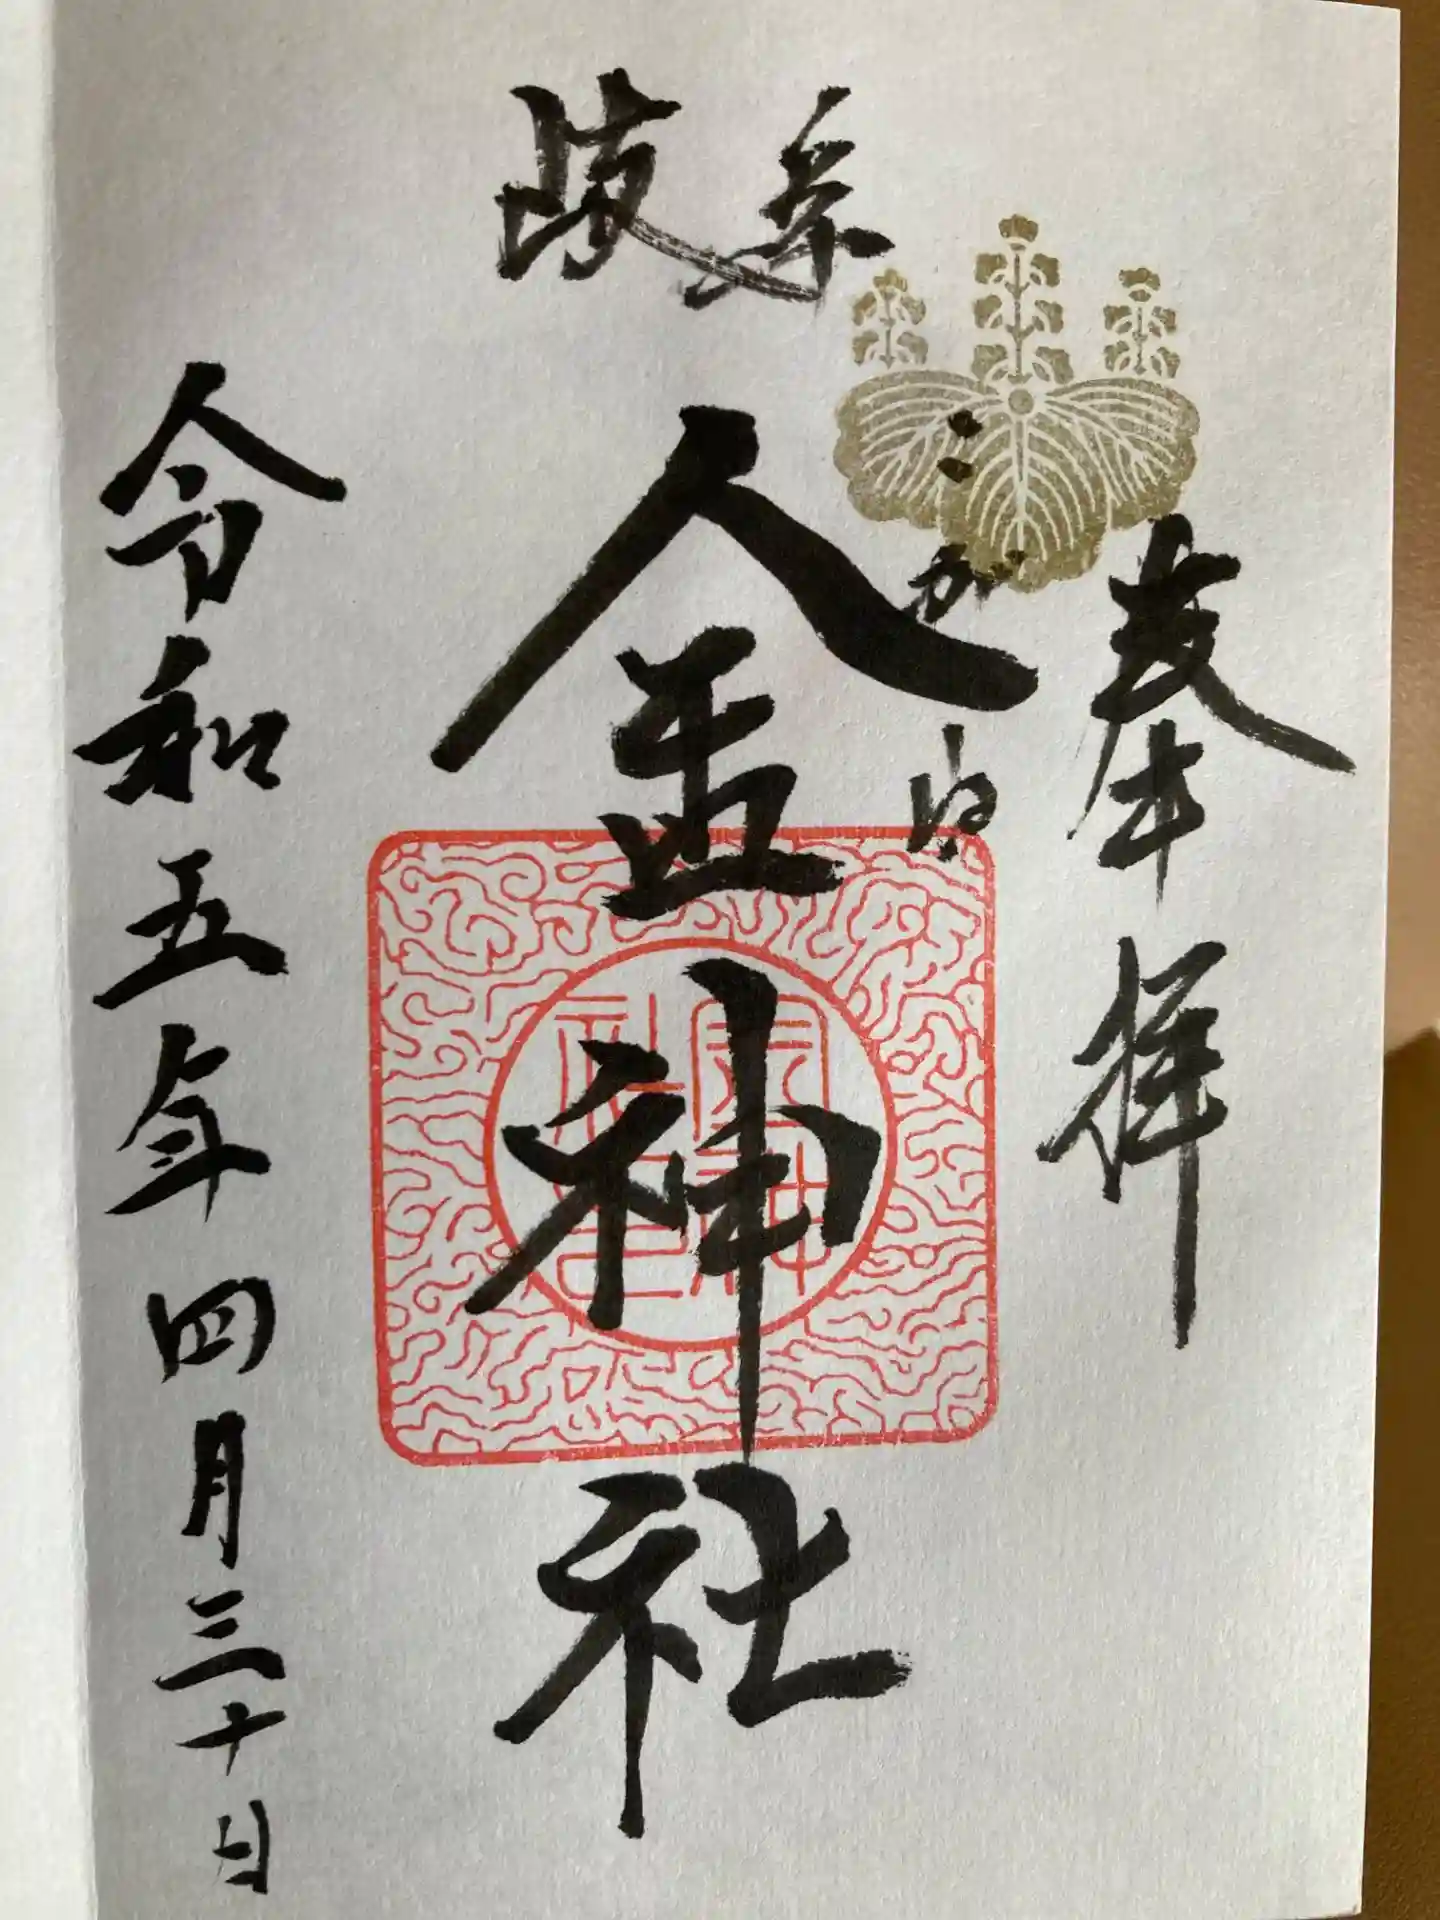 奉拝
岐阜
こがね
金神社
令和五年四月三十日